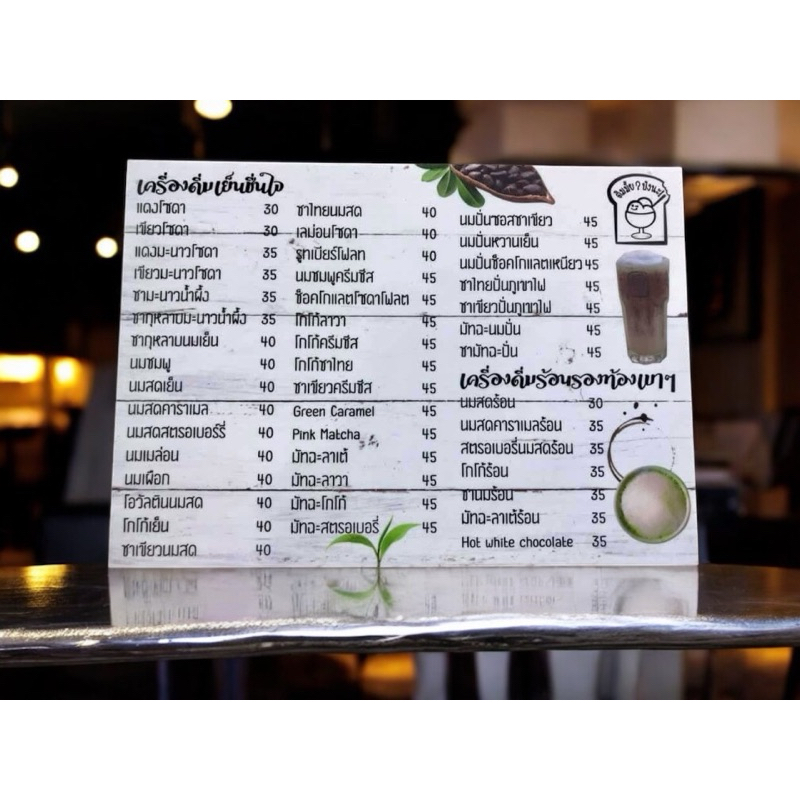 เครื่องดื่มเย็นชื่นใจ
แดงโซดา 30
เขียวโซดา 30
แดงมะนาวโซดา 35
เขียวมะนาวโซดา 35
ชามะนาวน้ำผึ้ง 35
ชากุหลาบมะนาวน้ำผึ้ง 35
ชากุหลาบนมเย็น 40
นมชมพู 40
นมสดเย็น 40
นมสดคาราเมล 40
นมสดสตรอเบอร์รี่ 40
นมเมล่อน 40
นมเผือก 40
โอวัลตินนมสด 40
โกโก้เย็น 40
ชาเขียวนมสด 40
ชาไทยนมสด 40
เลม่อนโซดา 40
รูทเบียร์โฟลท 40
นมชมพูครีมชีส 45
ช็อคโกแลตโซดาโฟลต 45
โกโก้ลาวา 45
โกโก้ครีมชีส 45
โกโก้ชาไทย 45
ชาเขียวครีมชีส 45
Green Caramel 45
Pink Matcha 45
มัทฉะลาเต้ 45
มัทฉะลาวา 45
มัทฉะโกโก้ 45
มัทฉะสตรอเบอรี่ 45
นมปั่นซอสชาเขียว 45
นมปั่นหวานเย็น 45
นมปั่นช็อคโกแลตเหนียว 45
ชาไทยปั่นภูเขาไฟ 45
ชาเขียวปั่นภูเขาไฟ 45
มัทฉะนมปั่น 45
ชามัทฉะปั่น 45
เครื่องดื่มร้อนรองท้องเบาๆ
นมสดร้อน 30
นมสดคาราเมลร้อน 35
สตรอเบอรี่นมสดร้อน 35
โกโก้ร้อน 35
ชานมร้อน 35
มัทฉะลาเต้ร้อน 35
Hot white chocolate 35